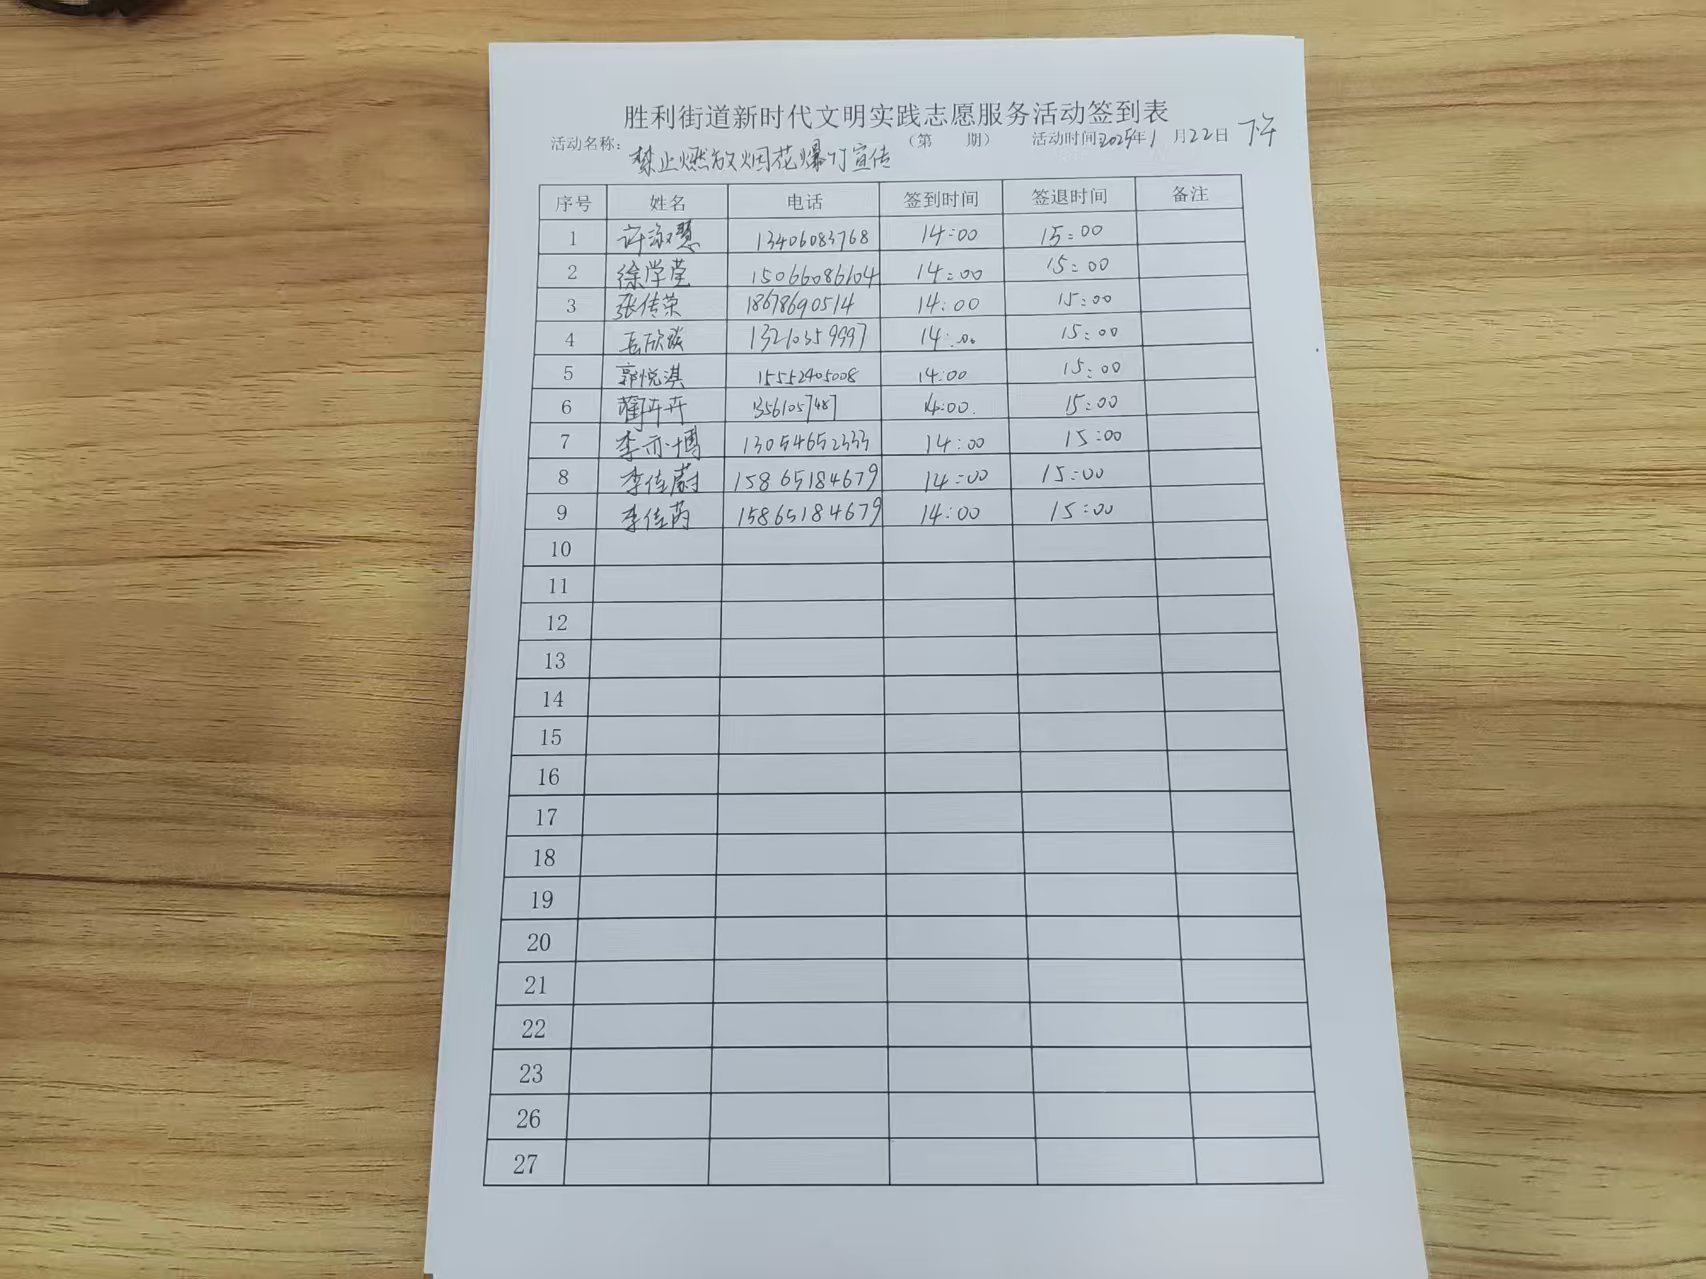 胜利街道新时代文明实践志愿服务活动签到表
活动名称：禁止燃放烟花爆竹宣传 （第 期） 活动时间2025年1月22日 下午
序号 姓名 电话 签到时间 签退时间 备注
1 许淑慧 13406083768 14:00 15:00
2 徐学莹 15066086104 14:00 15:00
3 张传荣 18678690514 14:00 15:00
4 13210359997 14:00 15:00
5 郭悦淇 15552405008 14:00 15:00
6 蔺卉卉 13561057487 14:00 15:00
7 李亦博 13054652333 14:00 15:00
8 李佳蔚 15865184679 14:00 15:00
9 李佳芮 15865184679 14:00 15:00
10
11
12
13
14
15
16
17
18
19
20
21
22
23
26
27